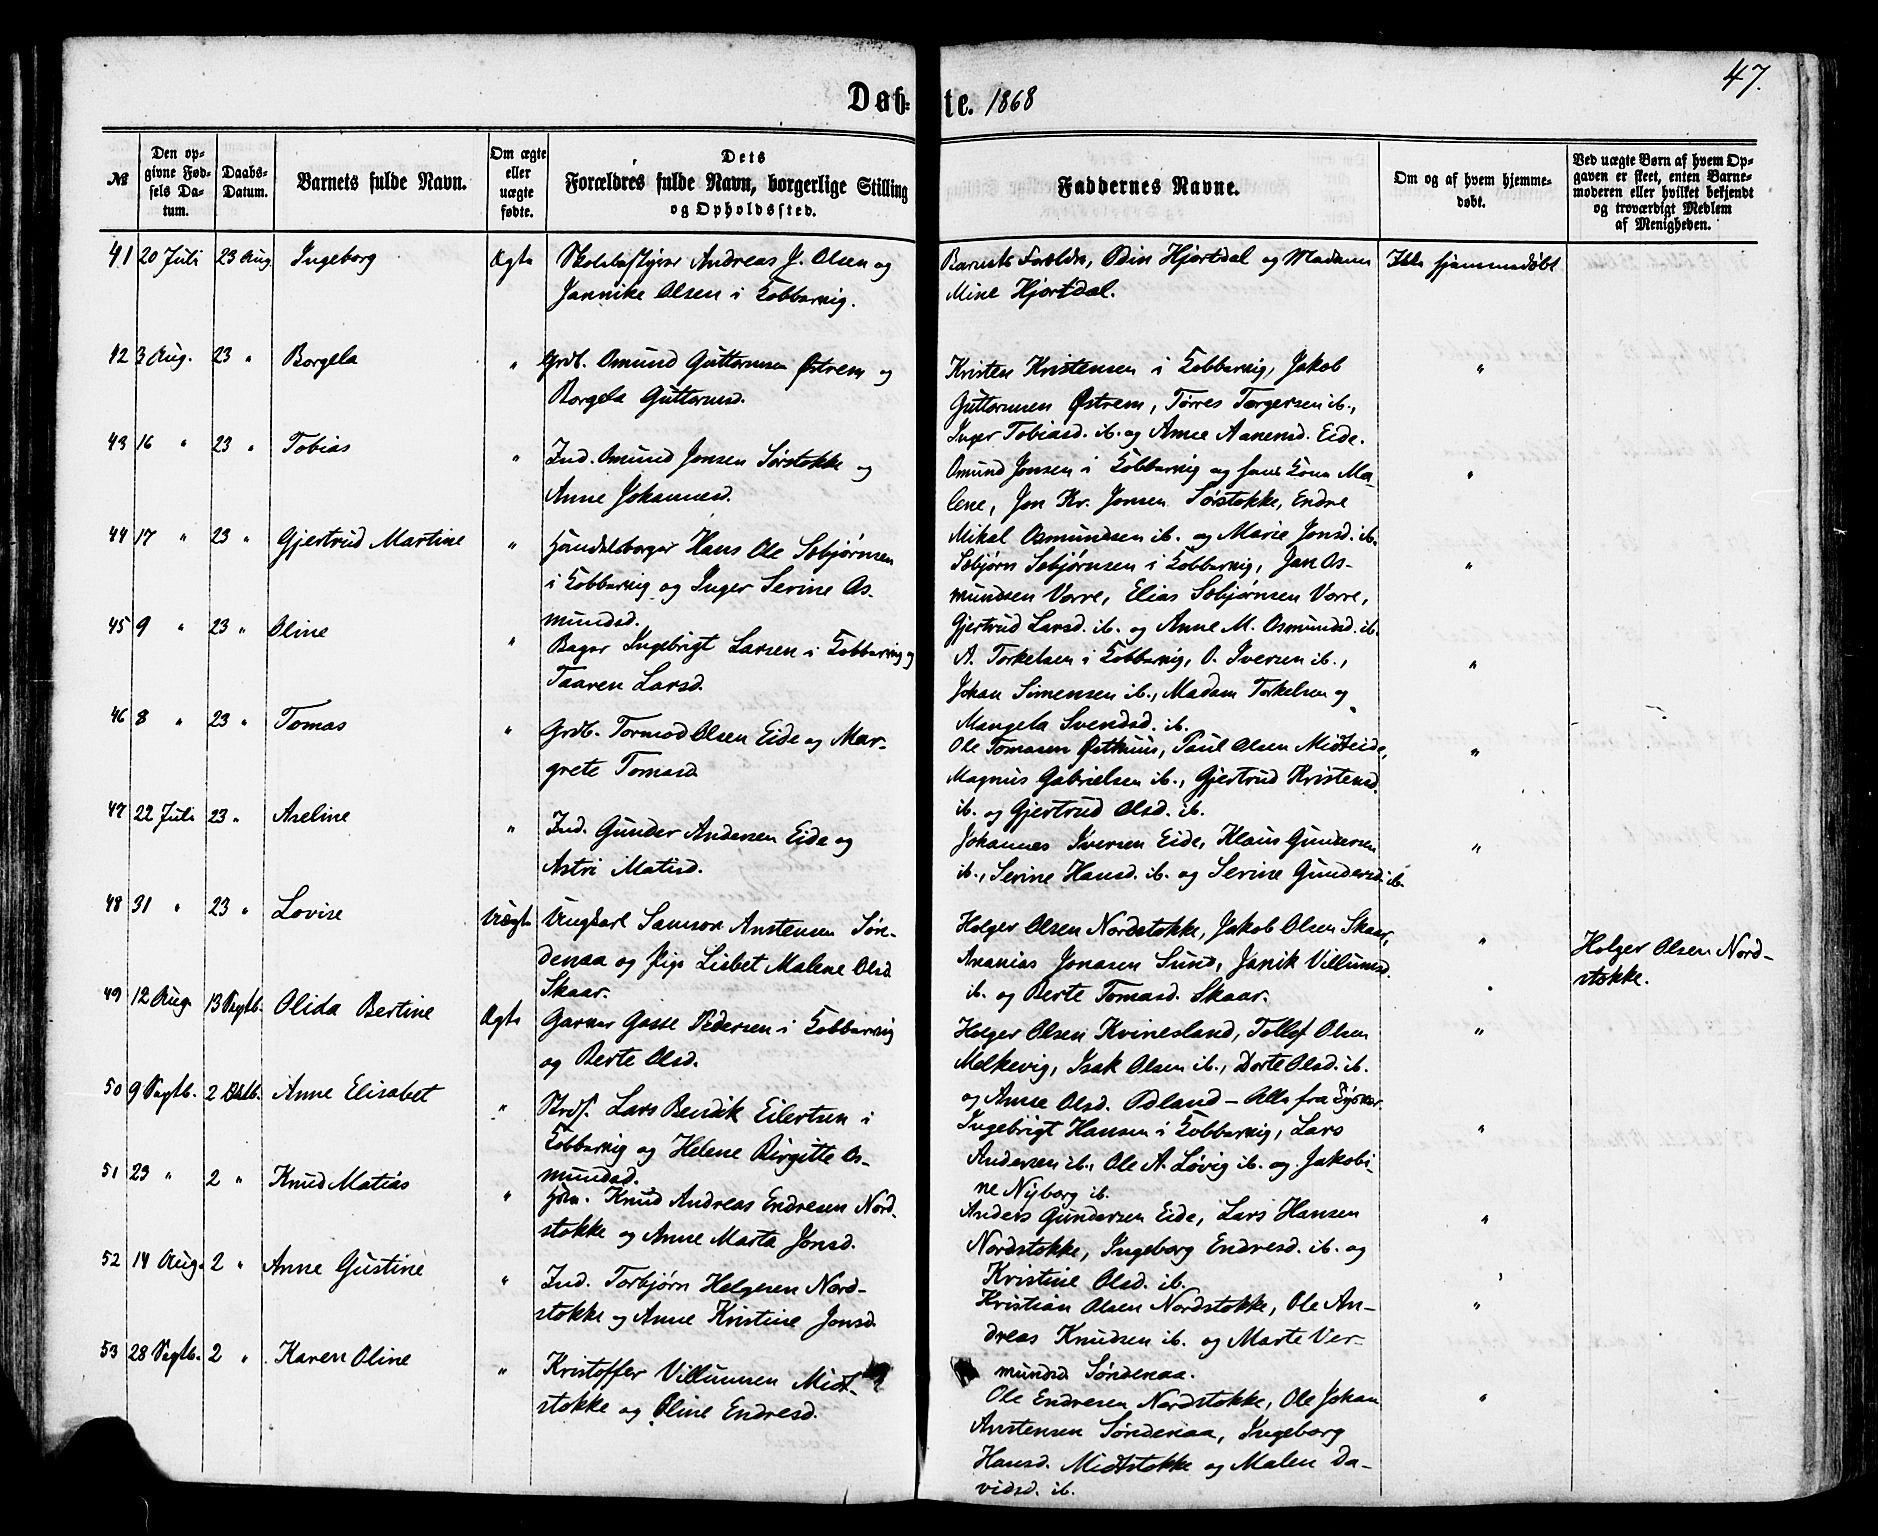 47.
Døb-te. 1868
№
Den opgivne Fødsels Datum.
Daabs-Datum.
Barnets fulde Navn.
Om ægte eller uægte fødte.
Dets Forældres fulde Navn, borgerlige Stilling og Opholdssted.
Faddernes Navne.
Om og af hvem hjemmedøbt.
Ved uægte Børn af hvem Opgaven er skeet, enten Barnemoderen eller hvilket bekjendt og troværdigt Medlem af Menigheden.
41 20 Juli 23 Aug Ingeborg Ægte
Andreas J. Olsen og
Jannike Olsen i Kobbervig.
Barnets Forældre, Odin Hjortdal og Madame
Mine Hjortdal.
Ikke hjemmedøbt
42 3 Aug. 23 " Borgela "
Grdb. Omund Guttormsen Østrem og
Borgela Guttormsd.
Kristen Kristensen i Kobbervig, Jakob
Guttormsen Østrem, Tørres Torgersen ib.,
Inger Tobiasd. ib. og Anne Aanensd. Eide.
"
43 16 " 23 " Tobias "
Ind. Omund Jonsen Sørstokke og
Anne Johannesd.
Omund Jonsen i Kobbervig og hans Kone Ma-
lene, Jon Kr. Jonsen Sørstokke, Endre
Mikal Osmundsen ib. og Marie Jonsd. ib.
"
44 17 " 23 " Gjertrud Martine "
Handelsborger Hans Ole Sebjørnsen
i Kobbervig og Inger Serine Os-
mundsd.
Sebjørn Sebjørnsen i Kobbervig, Jan Os-
mundsen Vorre, Elias Sebjørnsen Vorre,
Gjertrud Larsd. ib. og Anne M. Osmundsd. ib.
"
45 9 " 23 " Oline "
Bager Ingebrigt Larsen i Kobbervig og
Taaren Larsd.
A. Torkelsen i Kobbervig, O. Iversen ib.,
Johan Simensen ib., Madam Torkelsen og
Mangela Svendsd. ib.
"
46 8 " 23 " Tomas "
Grdb. Tormod Olsen Eide og Mar-
grete Tomasd.
Ole Tomasen Østhuus, Paul Olsen Midteide,
Magnus Gabrielsen ib., Gjertrud Kristensd.
ib. og Gjertrud Olsd. ib.
"
47 22 Juli 23 " Aseline "
Ind. Gunder Andersen Eide og
Astri Matisd.
Johannes Iversen Eide, Klaus Gundersen
ib., Serine Hansd. ib. og Serine Gundersd. ib.
"
48 31 " 23 " Lovise Uægte
Ungkarl Samson Anstensen Søn-
denaa og Pige Lisbet Malene Olsd
Skaar.
Holger Olsen Nordstokke, Jakob Olsen Skaar,
Ananias Jonasen Sund, Janik Villumsd.
ib. og Berte Tomasd. Skaar.
"
Holger Olsen Nord-
stokke.
49 12 Aug. 13 Septb. Olida Bertine Ægte
Garver Gasse Pedersen i Kobbervig
og Berte Olsd.
Holger Olsen Kvinesland, Tollef Olsen
Melkevig, Isak Olsen ib., Dorte Olsd. ib.
og Anne Olsd. Odland - Alle fra Tysvær.
"
50 9 Septb. 2 Oktb. Anne Elisabet "
Strds. Lars Bendik Eilertsen i
Kobbervig og Helene Birgitte Os-
mundsd.
Ingebrigt Hansen i Kobbervig, Lars
Andersen ib., Ole A. Løvig ib. og Jakobi-
ne Nyborg ib.
"
51 23 " 2 " Knud Matias "
Knud Andreas Endresen Nord-
stokke og Anne Marta Jonsd.
Anders Gundersen Eide, Lars Hansen
Nordstokke, Ingeborg Endresd. ib. og
Kristine Olsd. ib.
"
52 14 Aug. 2 " Anne Gustine "
Ind. Torbjørn Helgesen Nord-
stokke og Anne Kristine Jonsd.
Kristian Olsen Nordstokke, Ole An-
dreas Knudsen ib. og Marte Ver-
mundsd Søndenaa.
"
53 28 Septb. 2 " Karen Oline "
Kristoffer Villumsen Midt-
stokke og Oline Endresd.
Ole Endresen Nordstokke, Ole Johan
Anstensen Søndenaa, Ingeborg
Hansd. Midtstokke og Malen Da-
vidsd. ib.
"